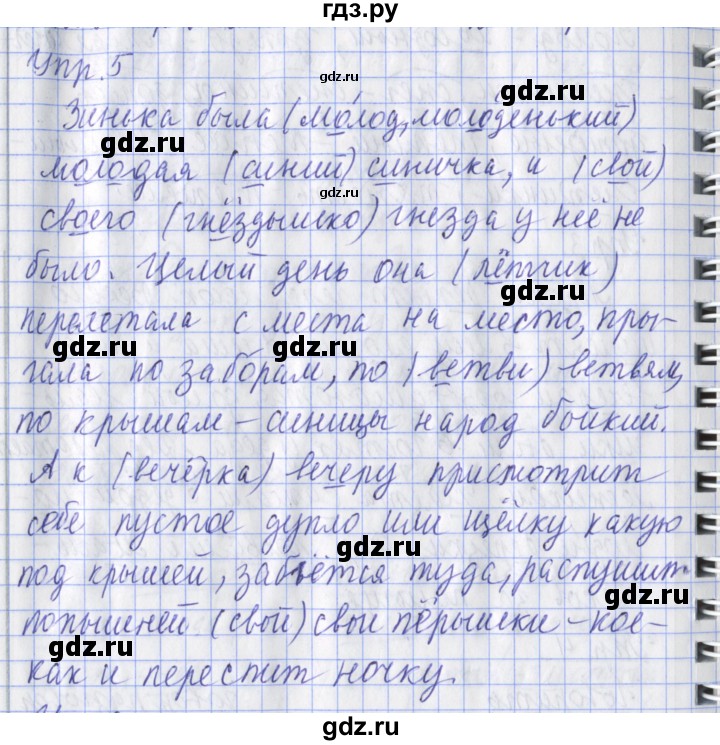 гдз.ру
Упр. 5
gdz.ru
gdz.ru
Зинька была (молод, молоденький)
gdz.ru
молодая (синий) синичка, и (свой)
gdz.ru
gdz.ru
своего (гнёздышко) гнезда у неё не
было. Целый день она (лётчик)
gdz.ru
перелетала с места на место, пры-
gdz.ru
gdz.ru
гала по заборам, по (ветви) ветвям,
по крышам – синицы народ бойкий.
gdz.ru
А к (вечёрка) вечеру присмотрит
себе пустое дупло или щёлку какую
gdz.ru
под крышей, забьётся туда, распушит
gdz.ru
попышней (свой) свои пёрышки – кое-
как и переспит ночку.
gdz.ru